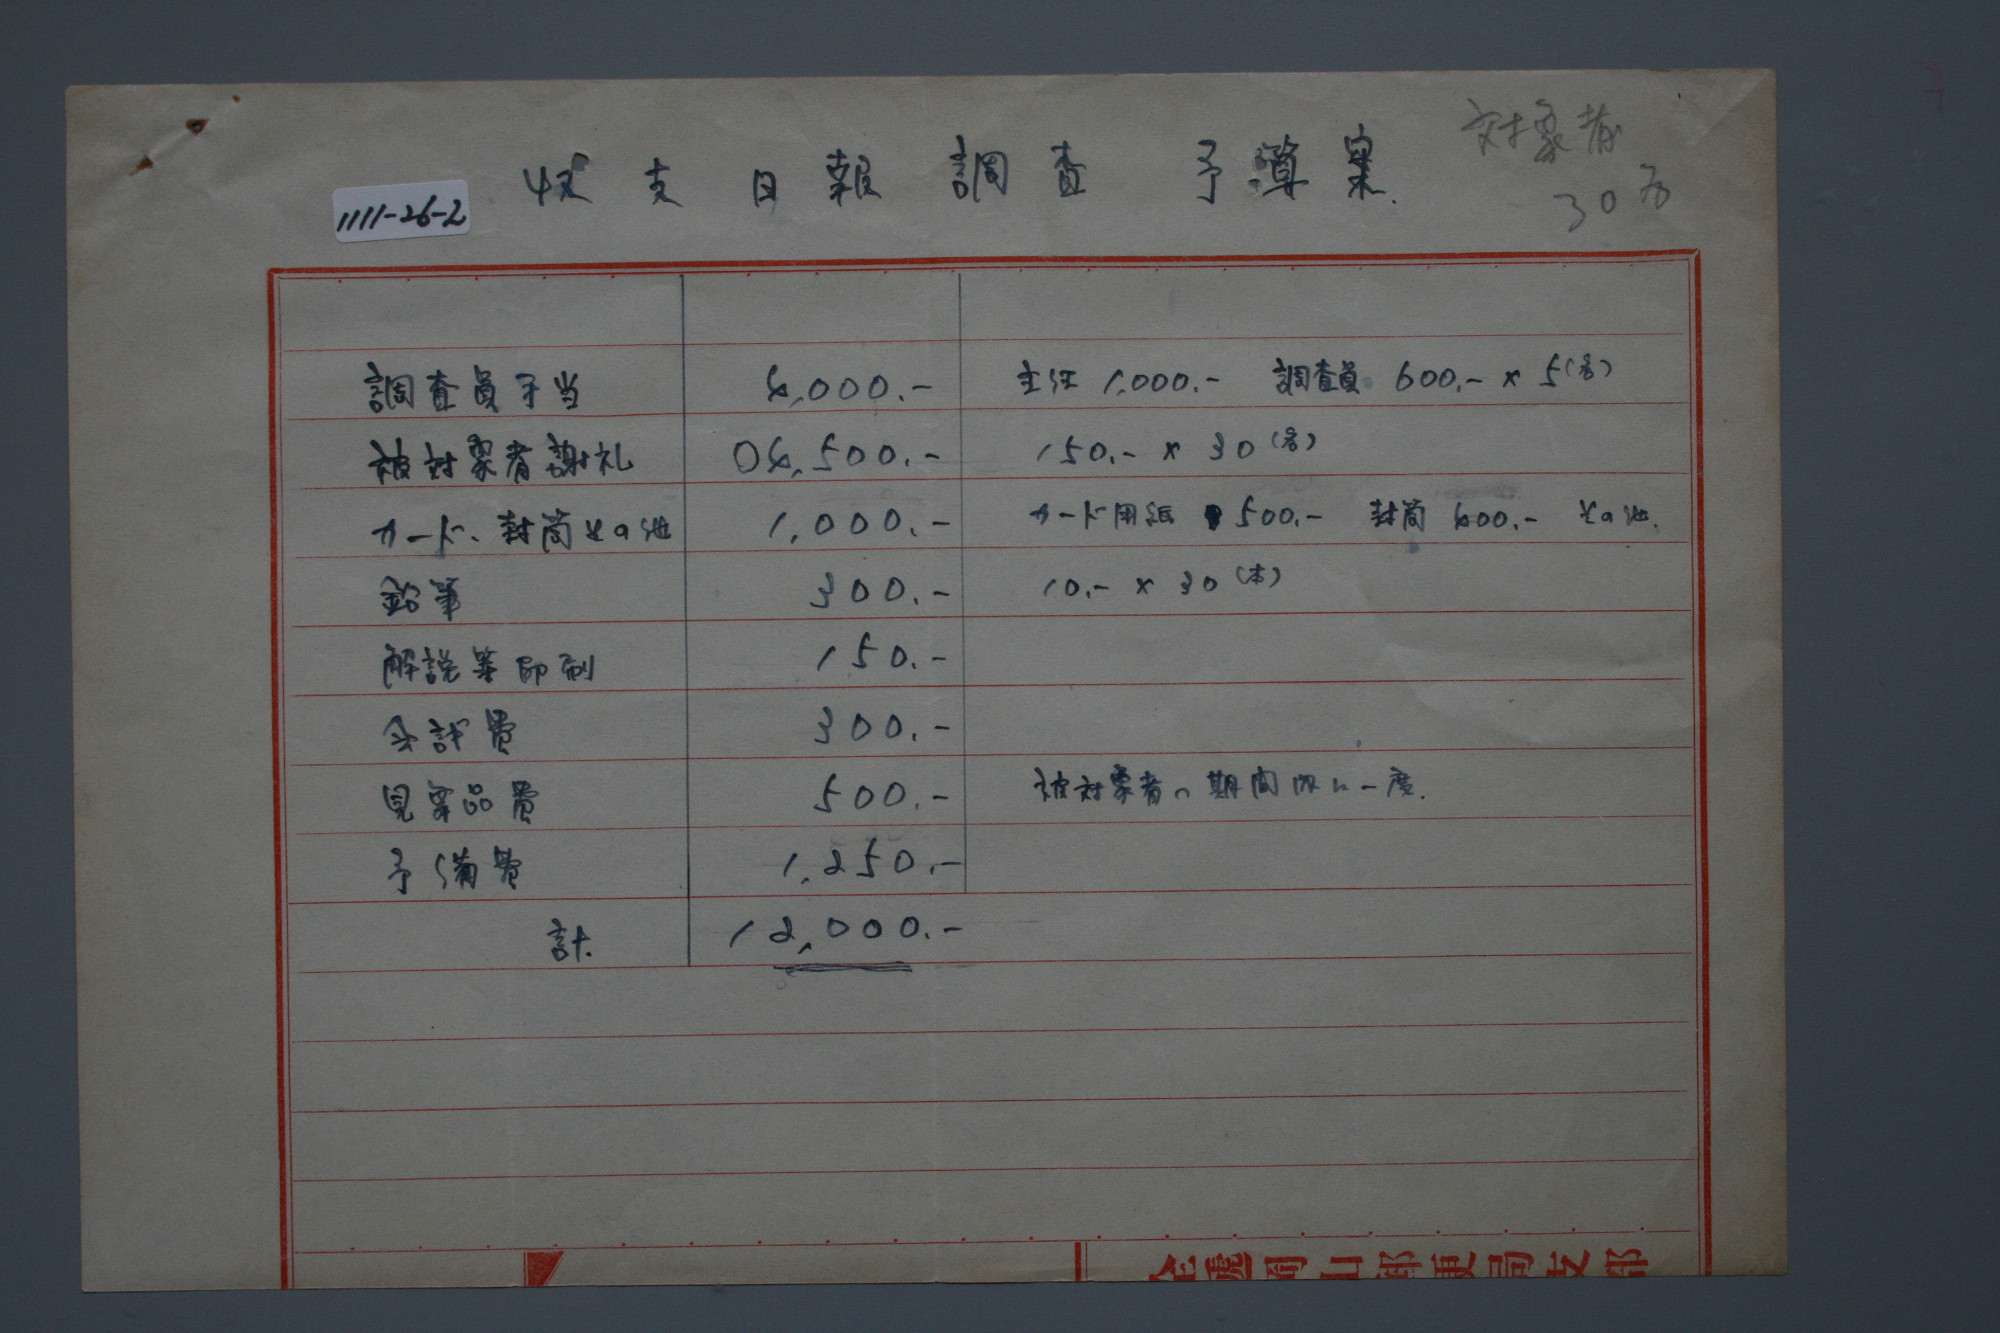 対象者
30名
収支日報調査 予算案.
1111-26-2
調査員手当 4,000.- 主任 1,000.- 調査員 600.- × 5(名)
被対象者謝礼 04,500.- 150.- × 30(名)
カード、封筒その他 1,000.- カード用紙 500.- 封筒 400.- その他.
鉛筆 300.- 10.- × 30(本)
解説等印刷 150.-
会計費 300.-
見案品費 500.- 被対象者へ期間内に一度.
予備費 1,250.-
計. 12,000.-